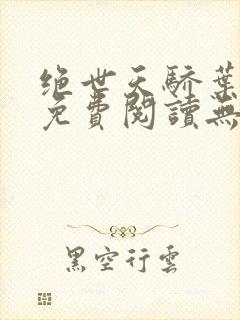 绝世天骄葉
免費閱讀無
黑空行雲